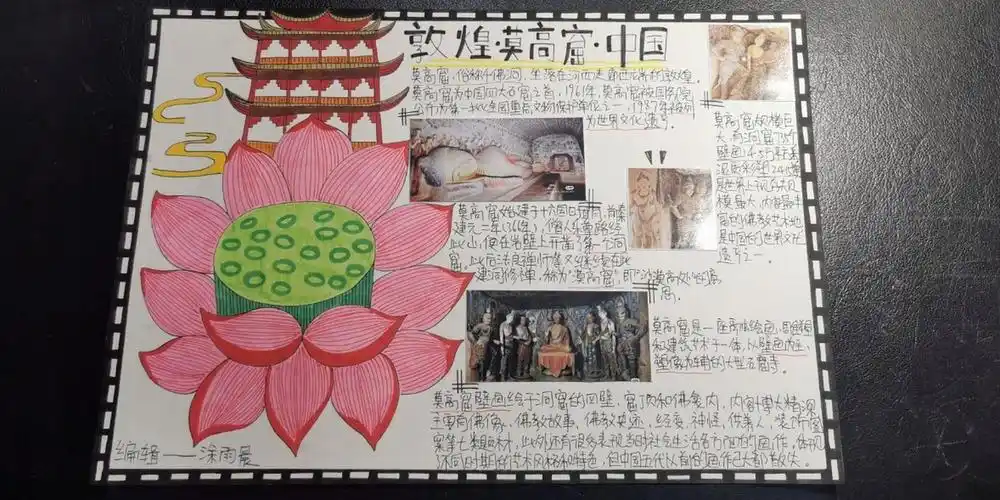 敦煌·莫高窟·中国
莫高窟,俗称千佛洞,坐落在河西走廊西端的敦煌。
莫高窟为中国四大石窟之首,1961年,莫高窟被国务院
公布为第一批全国重点文物保护单位之一,1987年被列
为世界文化遗产。
莫高窟规模巨
大,有洞窟735个
壁画4.5万平方米
泥质彩塑2415尊
是世界上现存规
模最大、内容最丰
富的佛教艺术地
是中国的世界文化
遗产之一。
莫高窟始建于十六国时期,前秦
建元二年(366年),僧人乐尊路经
此山,便在岩壁上开凿了第一个洞
窟。此后法良禅师等又继续在此
建洞修禅,称为"漠高窟",即"沙漠高处"的意
思。
莫高窟是一座融绘画、雕塑
和建筑艺术于一体,以壁画为主,
塑像为辅的大型石窟寺。
莫高窟壁画绘于洞窟的四壁、窟顶和佛龛内,内容博大精深
主要有佛像、佛教故事、佛教史迹、经变、神怪、供养人、装饰图
案等七类题材,此外还有很多表现当时社会生活各方面的画作,体现
不同时期的艺术风格和特色,但中国五代以前的画作已大都散失。
编辑——涂雨晨